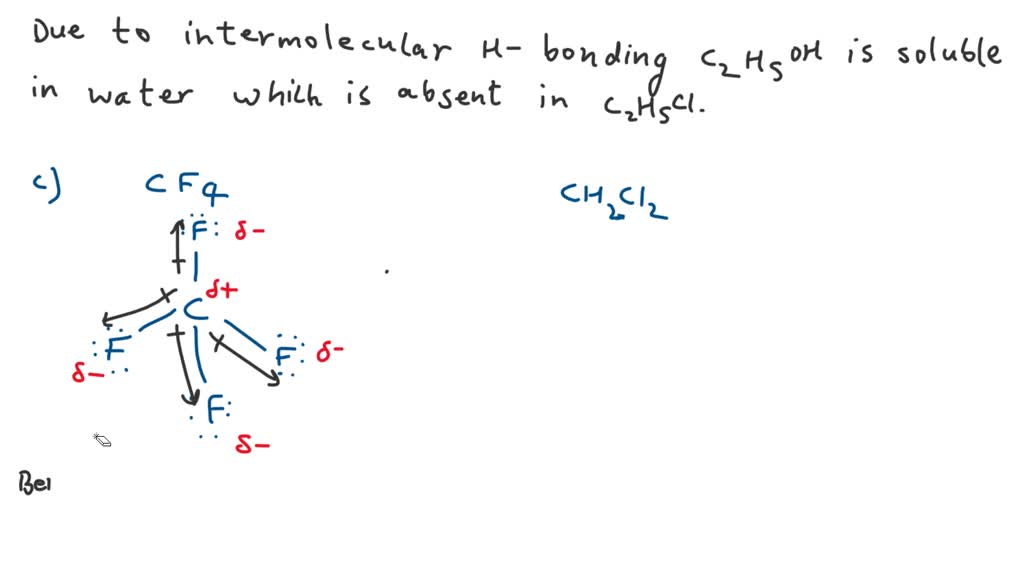 Due to intermolecular H- bonding C2H5OH is soluble
in water which is absent in C2H5Cl.
c) CF4 CH2Cl2
F: δ-
δ+
C
:F F: δ-
δ-
F:
δ-
Bei